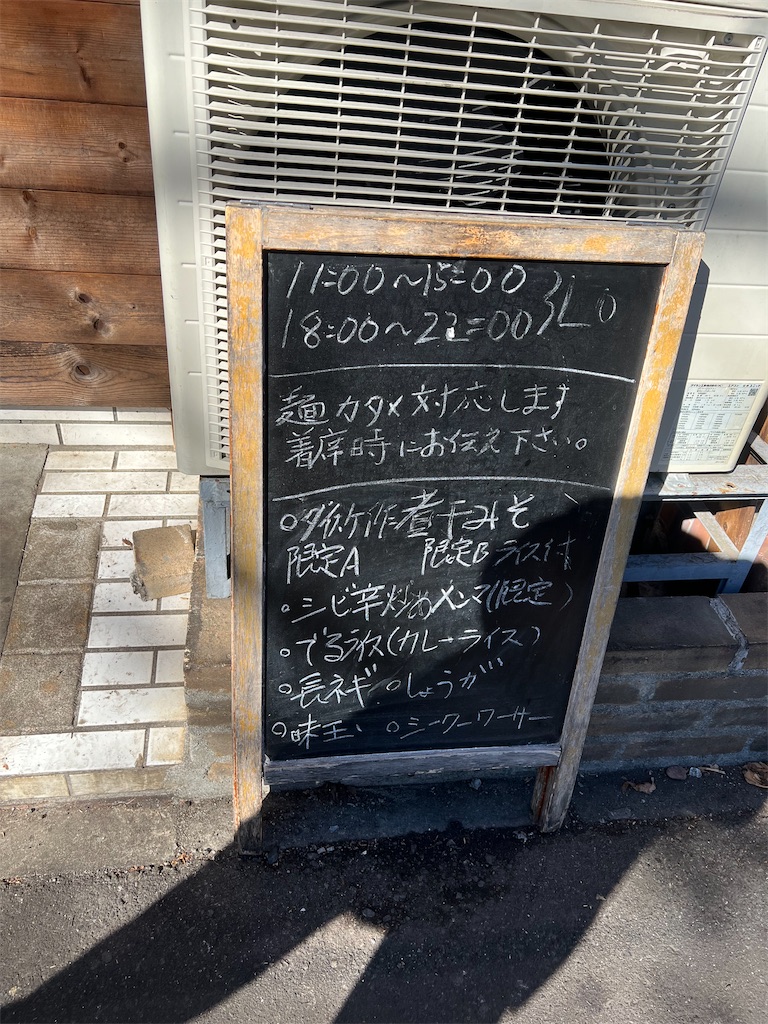 11:00～15:00
18:00～22:00 } LO
麺カタメ対応します
着席時にお伝え下さい。
作煮干みそ
限定A 限定B ライス付
・シビ辛炒めメンマ(限定)
○でるライス(カレーライス)
○長ネギ ○しょうが
○味玉 ○シークワーサー